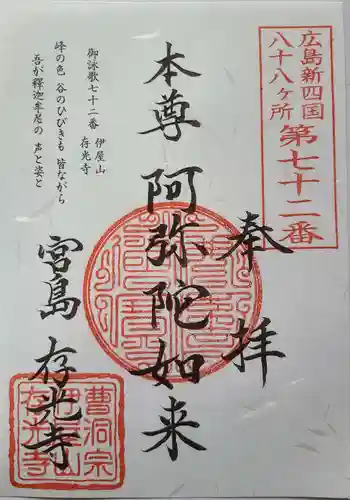 広島新四国
八十八ヶ所 第七十二番
奉拝
本尊 阿弥陀如来
御詠歌七十二番 伊屋山
存光寺
峰の色 谷のひびきも 皆ながら
吾が釋迦牟尼の 声と姿と
宮島 存光寺
曹洞宗
存光寺